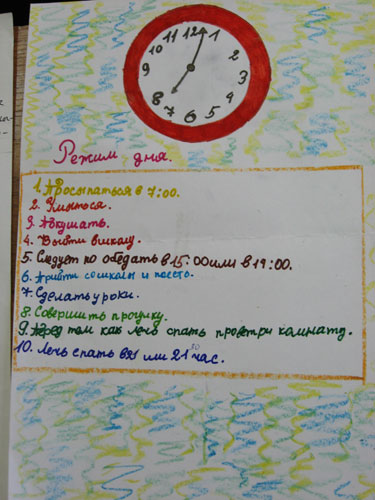 11 12 1
10 2
9 3
8 4
7 6 5
Режим дня.
1. Просыпаться в 7:00.
2. Умыться.
3. Покушать.
4. Выйти в школу.
5. Следует по обедать в 15:00 или в 14:00.
6. Прийти со школы и поесть.
7. Сделать уроки.
8. Совершить прогулку.
9. Перед тем как лечь спать проветри комнату.
10. Лечь спать в 21 или 21 30 час.